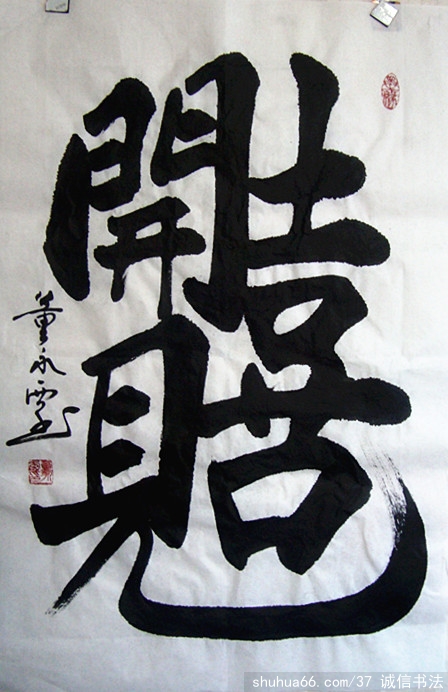 開門見喜
董永
shuhua66.com/37 诚信书法